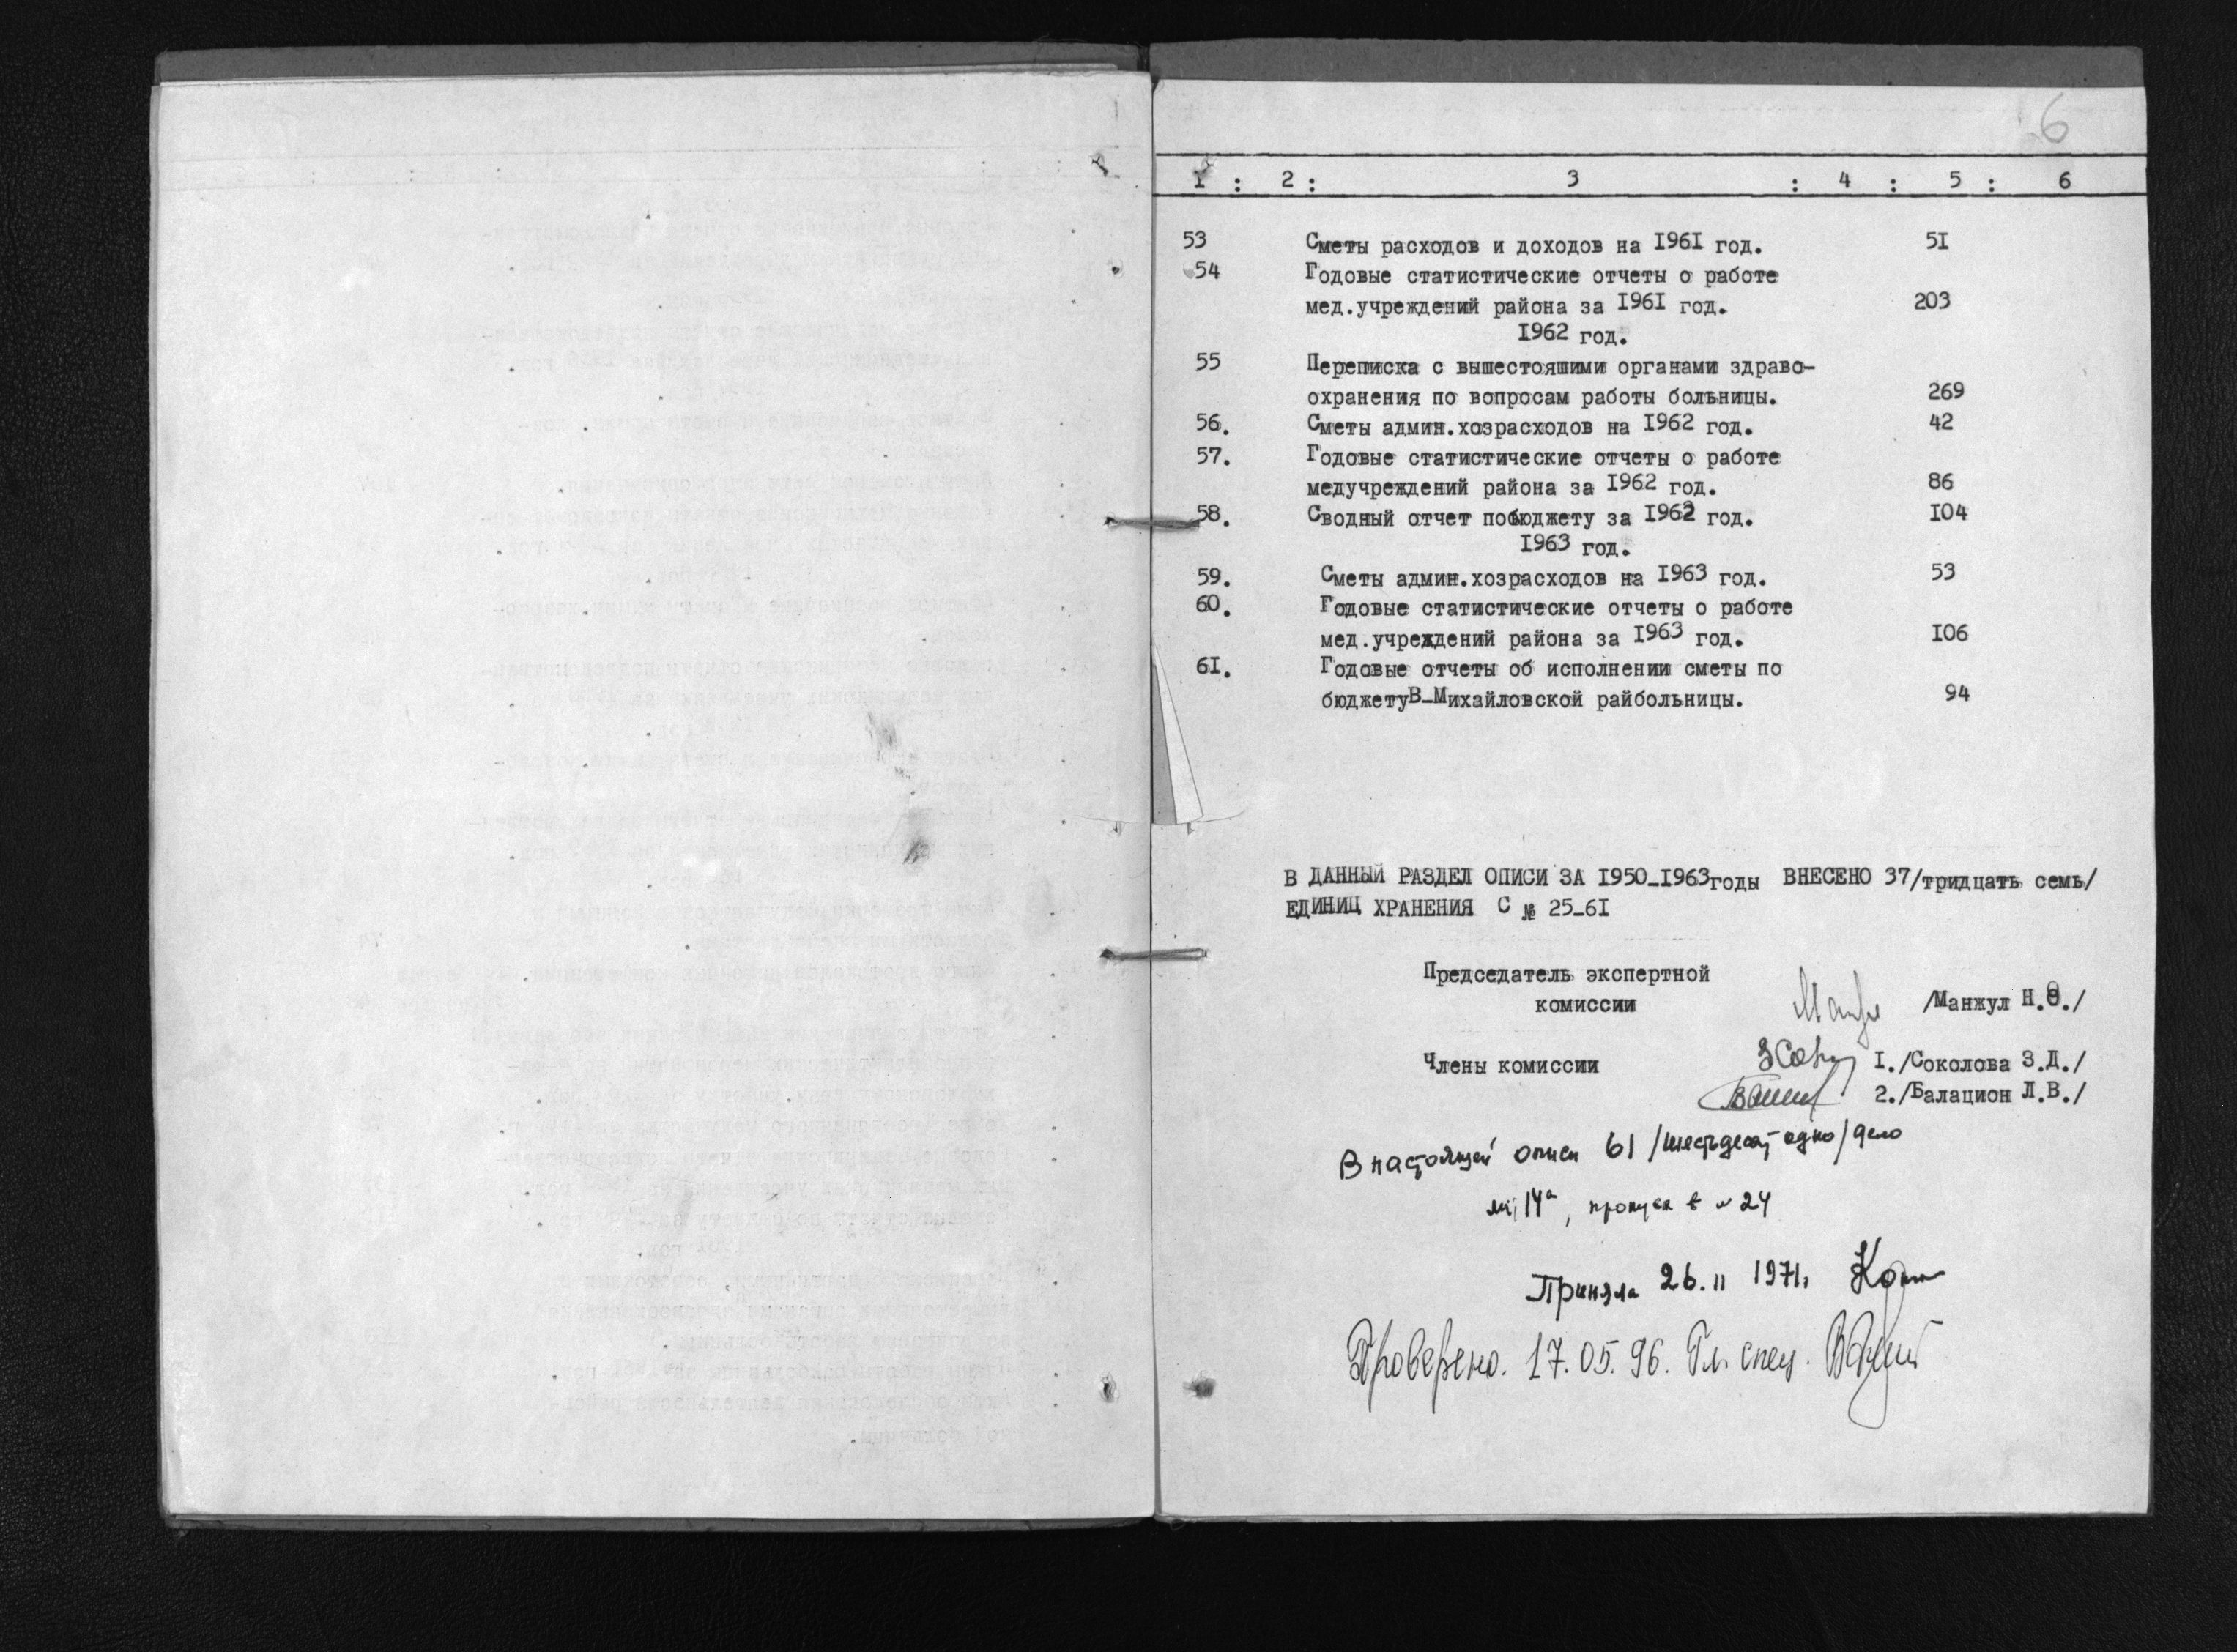 6
1 : 2 : 3 : 4 : 5 : 6
53 Сметы расходов и доходов на 1961 год. 51
54 Годовые статистические отчеты о работе
мед.учреждений района за 1961 год. 203
1962 год.
55 Переписка с вышестояшими органами здраво-
охранения по вопросам работы больницы. 269
56. Сметы админ.хозрасходов на 1962 год. 42
57. Годовые статистические отчеты о работе
медучреждений района за 1962 год. 86
58. Сводный отчет побюджету за 1962 год. 104
1963 год.
59. Сметы админ.хозрасходов на 1963 год. 53
60. Годовые статистические отчеты о работе
мед.учреждений района за 1963 год. 106
61. Годовые отчеты об исполнении сметы по
бюджетуВ-Михайловской райбольницы. 94
В ДАННЫЙ РАЗДЕЛ ОПИСИ ЗА 1950-1963годы ВНЕСЕНО 37/тридцать семь/
ЕДИНИЦ ХРАНЕНИЯ С № 25-61
Председатель экспертной
комиссии /Манжул Н.О./
Члены комиссии 1./Соколова З.Д./
2./Балацион Л.В./
В настоящей описи 61 /шестьдесят одно/ дело
14а, пропуск 24
Приняла 26.11 1971
Проверено. 17.05.96. Гл. спец.